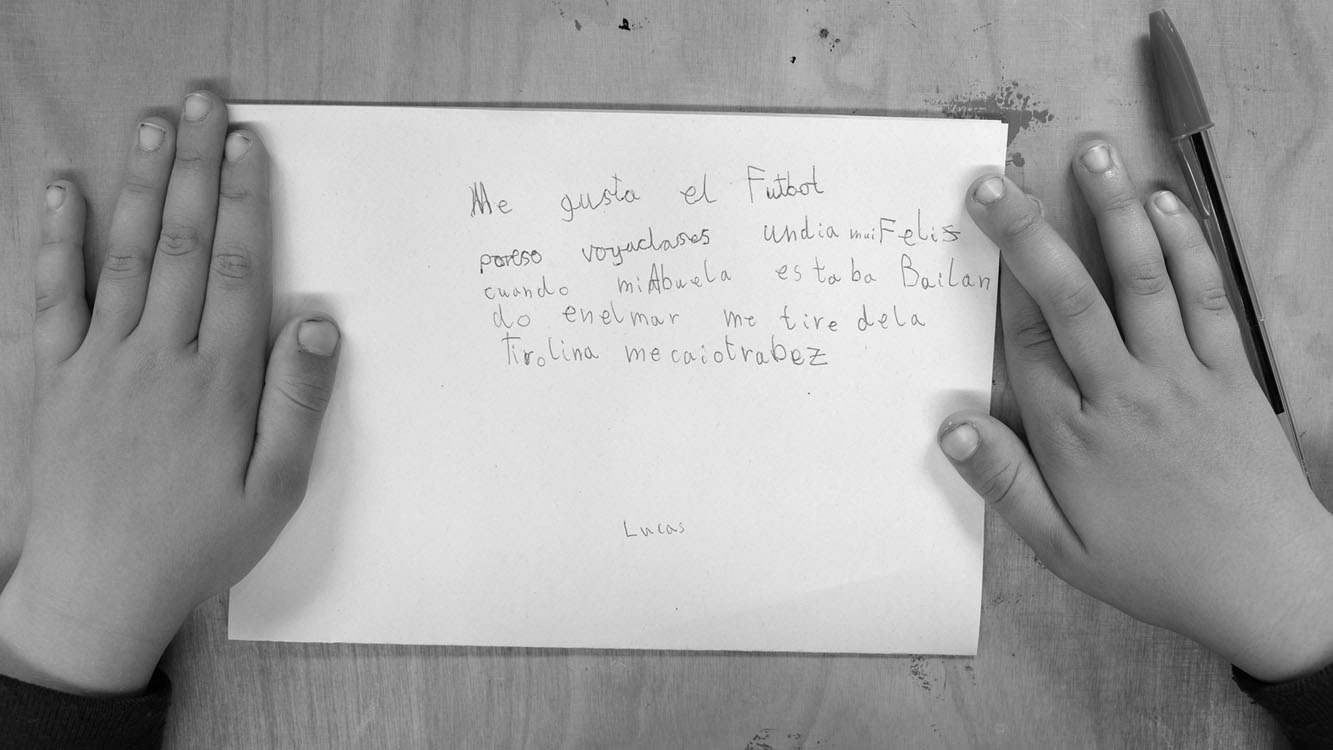 Me gusta el Futbol
poreso voyaclases undia mui Felis
cuando miAbuela estaba Bailan
do enelmar me tire dela
Tirolina mecaiotrabez
Lucas